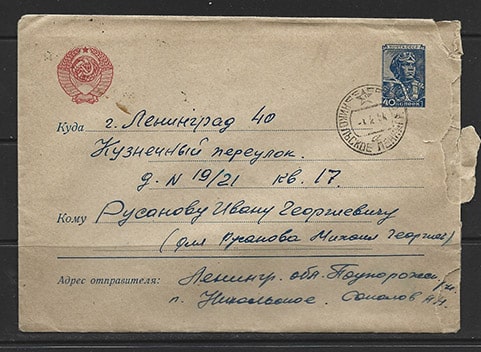 ПОЧТА СССР
40 КОПЕЕК
НИКОЛЬСКОЕ ЛЕНИНГР
Куда г. Ленинград 40
Кузнечный переулок.
д. N 19/21 кв. 17.
Кому Русанову Ивану Георгиевичу
(для Русанова Михаил Георгиев)
Адрес отправителя: Ленингр. обл. Подпорожск
п. Никольское. Соколов А.Н.